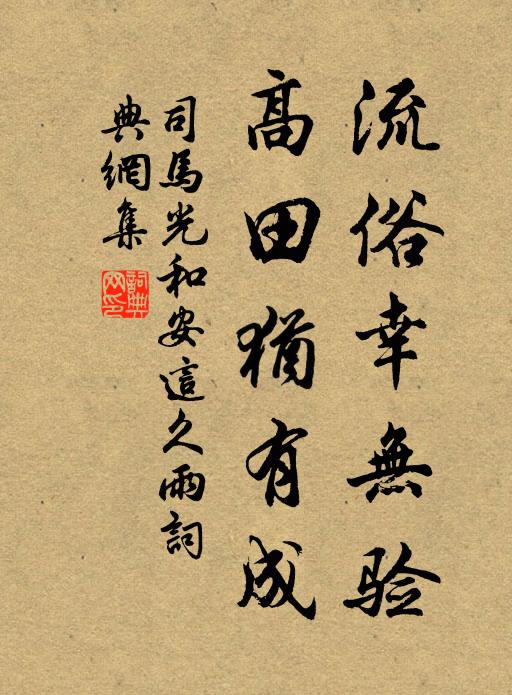 流俗幸無验
高田猶有成
司馬光和安這久雨詞
典網集
詞典
网印